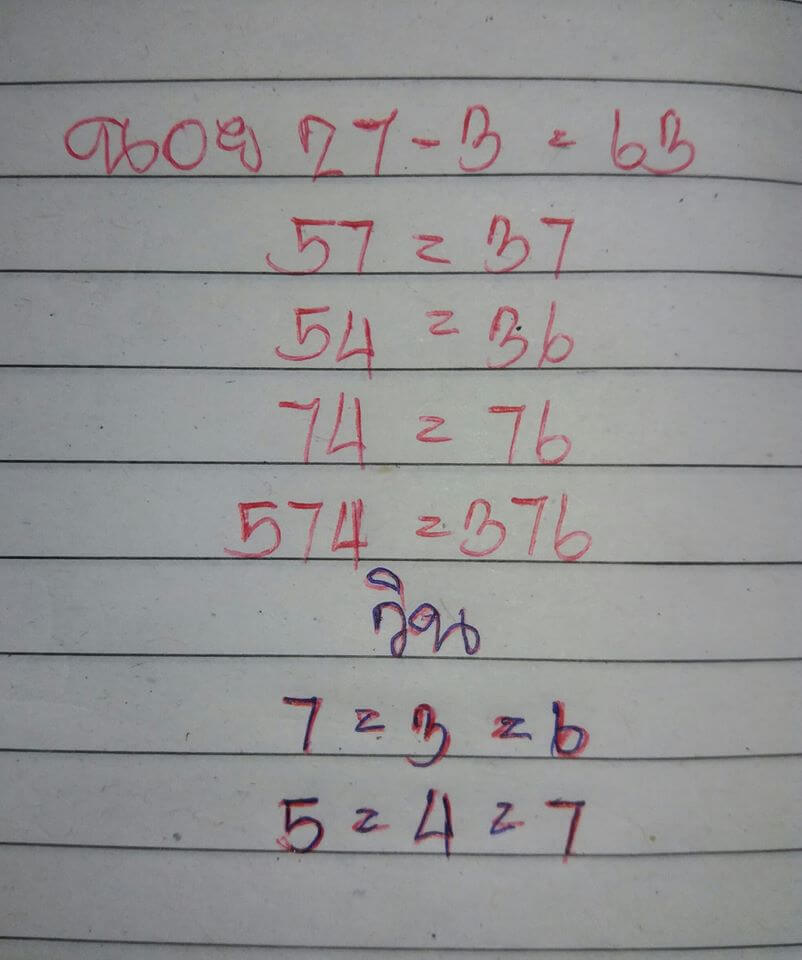 ฉนอย 27-3 = 63
57 = 37
54 = 36
74 = 76
574 = 376
วิน
7 = 3 = 6
5 = 4 = 7